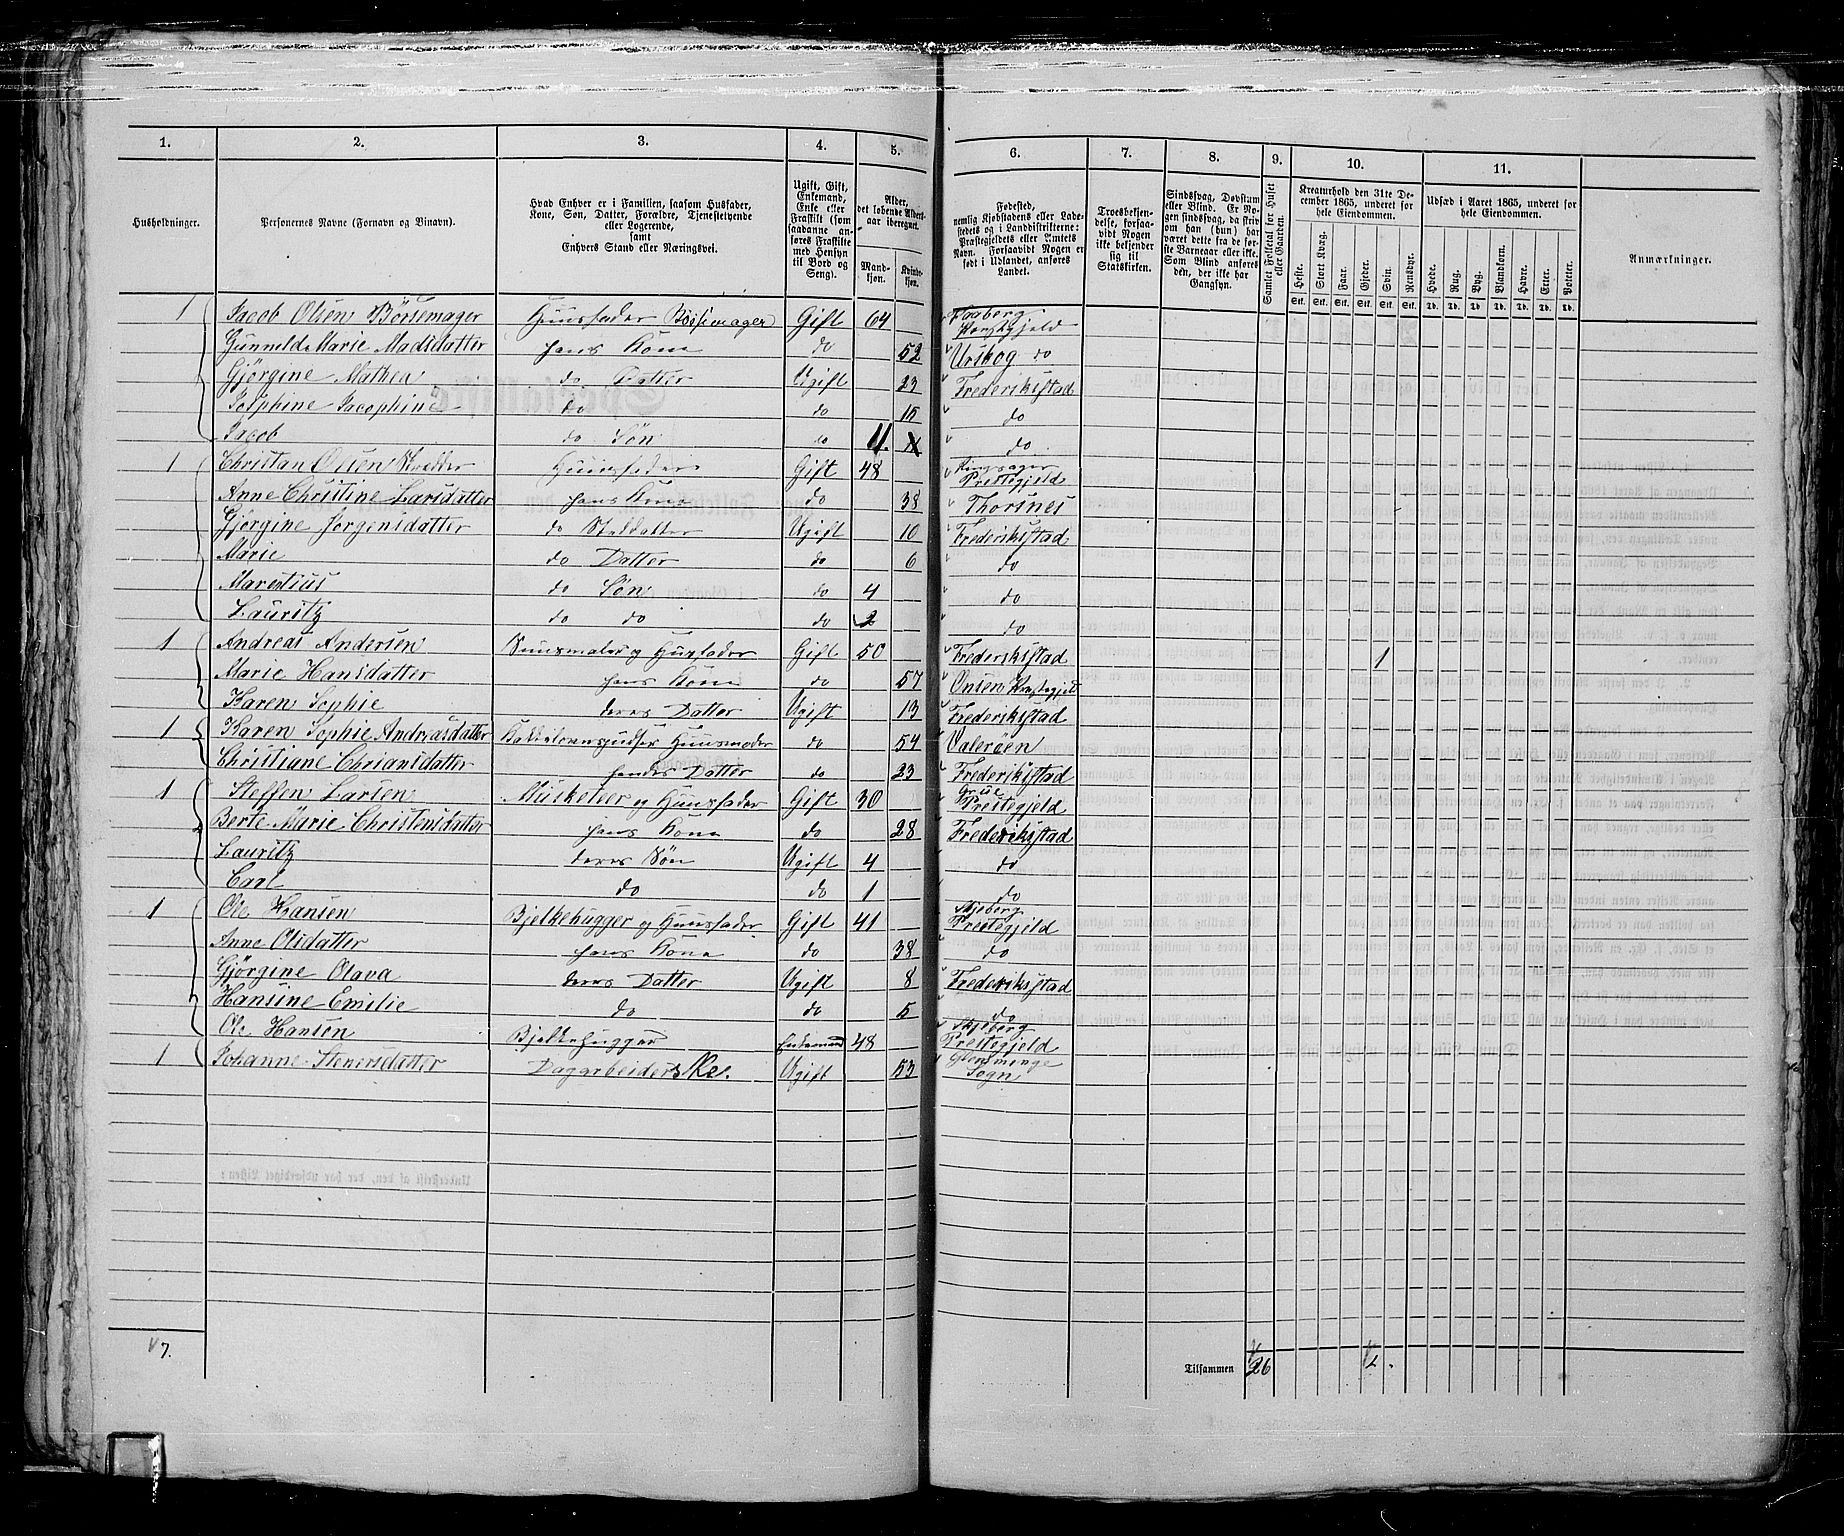 1. 2. 3. 4. 5. 6. 7. 8. 9. 10. 11.
Husholdninger.
Personernes Navne (Fornavn og Binavn).
Hvad Enhver er i Familien, saasom Husfader, Kone, Søn, Datter, Forældre, Tjenestetyende eller Logerende, samt Enhvers Stand eller Næringsvei.
Ugift, Gift, Enkemand, Enke eller Fraskilt (som saadanne anføres Fraskilte med Hensyn til Bord og Seng).
Alder, det løbende Aldersaar iberegnet.
Mandkjøn. Kvindekjøn.
Fødested, nemlig Kjøbstadens eller Ladestedets og i Landdistrikterne: Præstegjeldets eller Amtets Navn. Forsaavidt Nogen er født i Udlandet, anføres Landet.
Troesbekjendelse, forsaavidt Nogen ikke bekjender sig til Statskirken.
Sindssvag, Døvstum eller Blind. Er Nogen sindssvag, da skriv om han (hun) har været dette fra de første Barneaar eller ikke. Som Blind anføres den, der ikke har Gangsyn.
Samlet Folketal for Huset eller Gaarden.
Kreaturhold den 31te December 1865, underet for hele Eiendommen.
Heste. Stort Kvæg. Faar. Gjeder. Svin. Rensdyr.
Udsæd i Aaret 1865, underet for hele Eiendommen.
Hvede. Rug. Byg. Blandkorn. Havre. Erter. Poteter.
Anmærkninger.
Stk. Stk. Stk. Stk. Stk. Stk. Td. Td. Td. Td. Td. Td. Td.
1 Jacob Olsen Börsemager Huusfader Börsemager Gift 64 Faaberg Præstegjeld
Gunnild Marie Madsdatter hans Kone do 52 Urskog do
Gjörgine Mathea do Datter Ugift 23 Frederikstad
Josephine Jacophine do do 15 do
Jacob do Sön do 11 do
1 Christan Olsen Skredder Huusfader Gift 48 Ringsager Prestegjeld
Anne Christine Larsdatter hans Kone do 38 Thorsnes
Gjörgine Jörgensdatter do Steddatter Ugift 10 Frederikstad
Marie do Datter do 6 do
Marentius do Sön do 4 do
Lauritz do do do 2 do
1 Andreas Andersen Huusmaler og Huusfader Gift 50 Frederikstad 1
Marie Hansdatter hans Kone do 57 Onsøe Prestegjeld
Karen Sophie deres Datter Ugift 13 Frederikstad
1 Karen Sophie Andreasdatter Kakkelovnspudser Huusmoder do 54 Valeröen
Christiane Chriansdatter hendes Datter do 23 Frederikstad
1 Steffen Larsen Musketeer og Huusfader Gift 30 Grue Prestegjeld
Berte Marie Christensdatter hans Kone do 28 Frederikstad
Lauritz deres Sön Ugift 4 do
Carl do do 1 do
1 Ole Hansen Bjelkehugger og Huusfader Gift 41 Skjeberg Prestegjeld
Anne Olsdatter hans Kone do 38 do
Gjörgine Olava deres Datter Ugift 8 Frederikstad
Hansine Emilie do do 5 do
Ole Hansen Bjelkehugger Enkemand 48 Skjeberg Prestegjeld
1 Johanne Stenersdatter Dagarbeiderske. Ugift 53 Glemminge Sogn
7.
Tilsammen 26